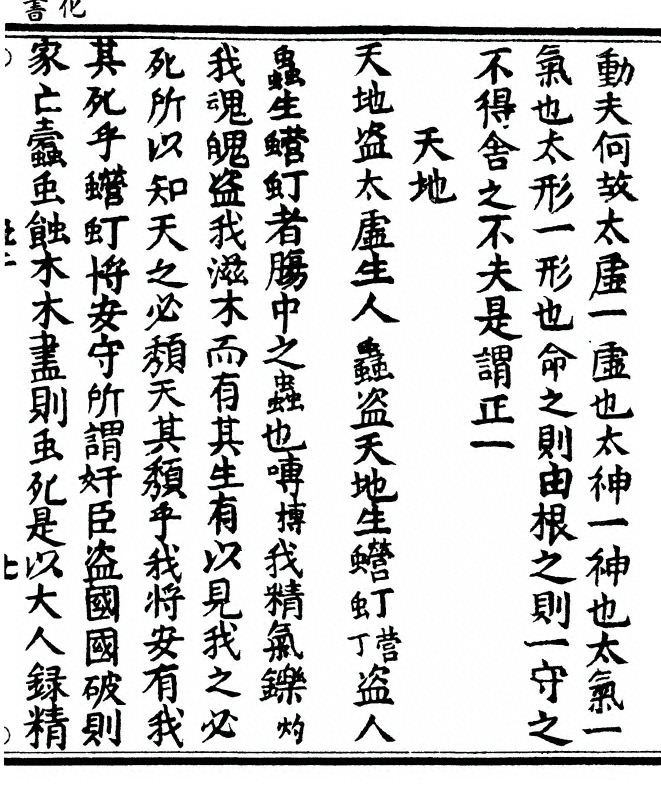 化書
動夫何故太虛一虛也太神一神也太氣一
氣也太形一形也命之則由根之則一守之
不得舍之不夫是謂正一
天地
天地盗太虛生人蟲盗天地生虰營丁盗人
蟲生虰者腸中之蟲也摶我精氣鑠灼
我魂魄盗我滋木而有其生有以見我之必
死所以知天之必頹天其頹乎我將安有我
其死乎虰將安守所謂奸臣盗國國破則
家亡蠹虫蝕木木盡則虫死是以大人録精